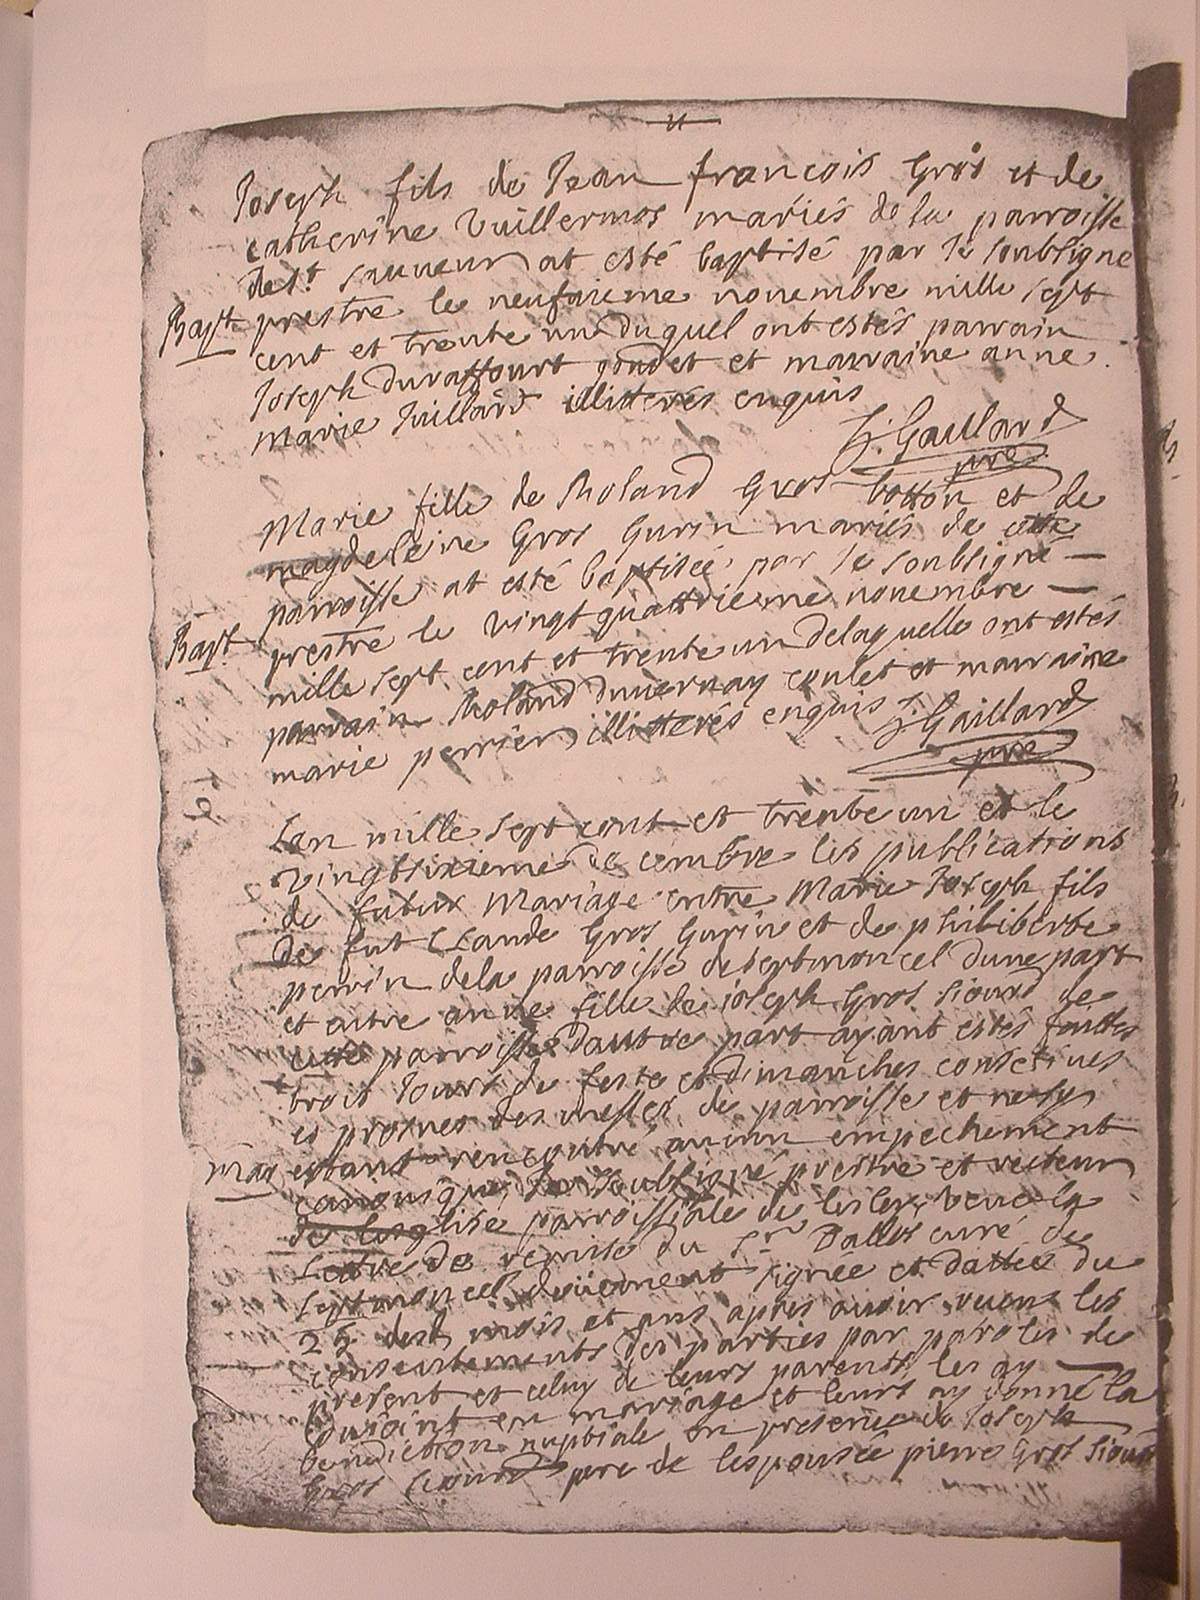 Joseph fils de Jean francois Gros et de
catherine Vuillermos mariés de la parroisse
de St sauveur at esté baptisé par le soubsigne
Bapt prestre le neufuieme nouembre mille sept
cent et trente un duquel ont estés parrain
Joseph duraffourt et marraine anne
marie Juillard illitterés enquis
J. Gaillard
pre
Marie fille de Roland Gros botton et de
magdeleine Gros Gurin mariés de cette
parroisse at esté baptiseé par le soubsigné
Bapt prestre le vingt quattrieme nouembre
mille sept cent et trente un delaquelle ont estés
parrain Roland duuernay coulet et marraine
marie perrier illitterés enquis J. Gaillard
pre
Lan mille sept cent et trente un et le
vingtsixieme decembre les publications
de futur Mariage entre Marie Joseph fils
De fut Claude Gros Gurin et de philiberte
perrin dela parroisse de septmoncel dune part
et entre anne fille de ioseph Gros siourd de
cette parroisse dautre part ayant estés faittes
trois Jours de feste et dimanches
es prosnes des messes de parroisse et
Mar estant rencontré aucun empechement
canonique Je soubsigné prestre et recteur
de leglise parroissiale de veue la
Lettre de remise du Sr Dallos curé de
septmoncel deüement signée et dattée du
25 dud mois et ans apres auoir les
consentements des parties par paroles de
present et celuy de leurs parents les ay
Conioint en mariage et leurs ay donné la
benediction nuptiale en presence de Joseph
Gros siourd pere de lespouseé pierre Gros Siourd